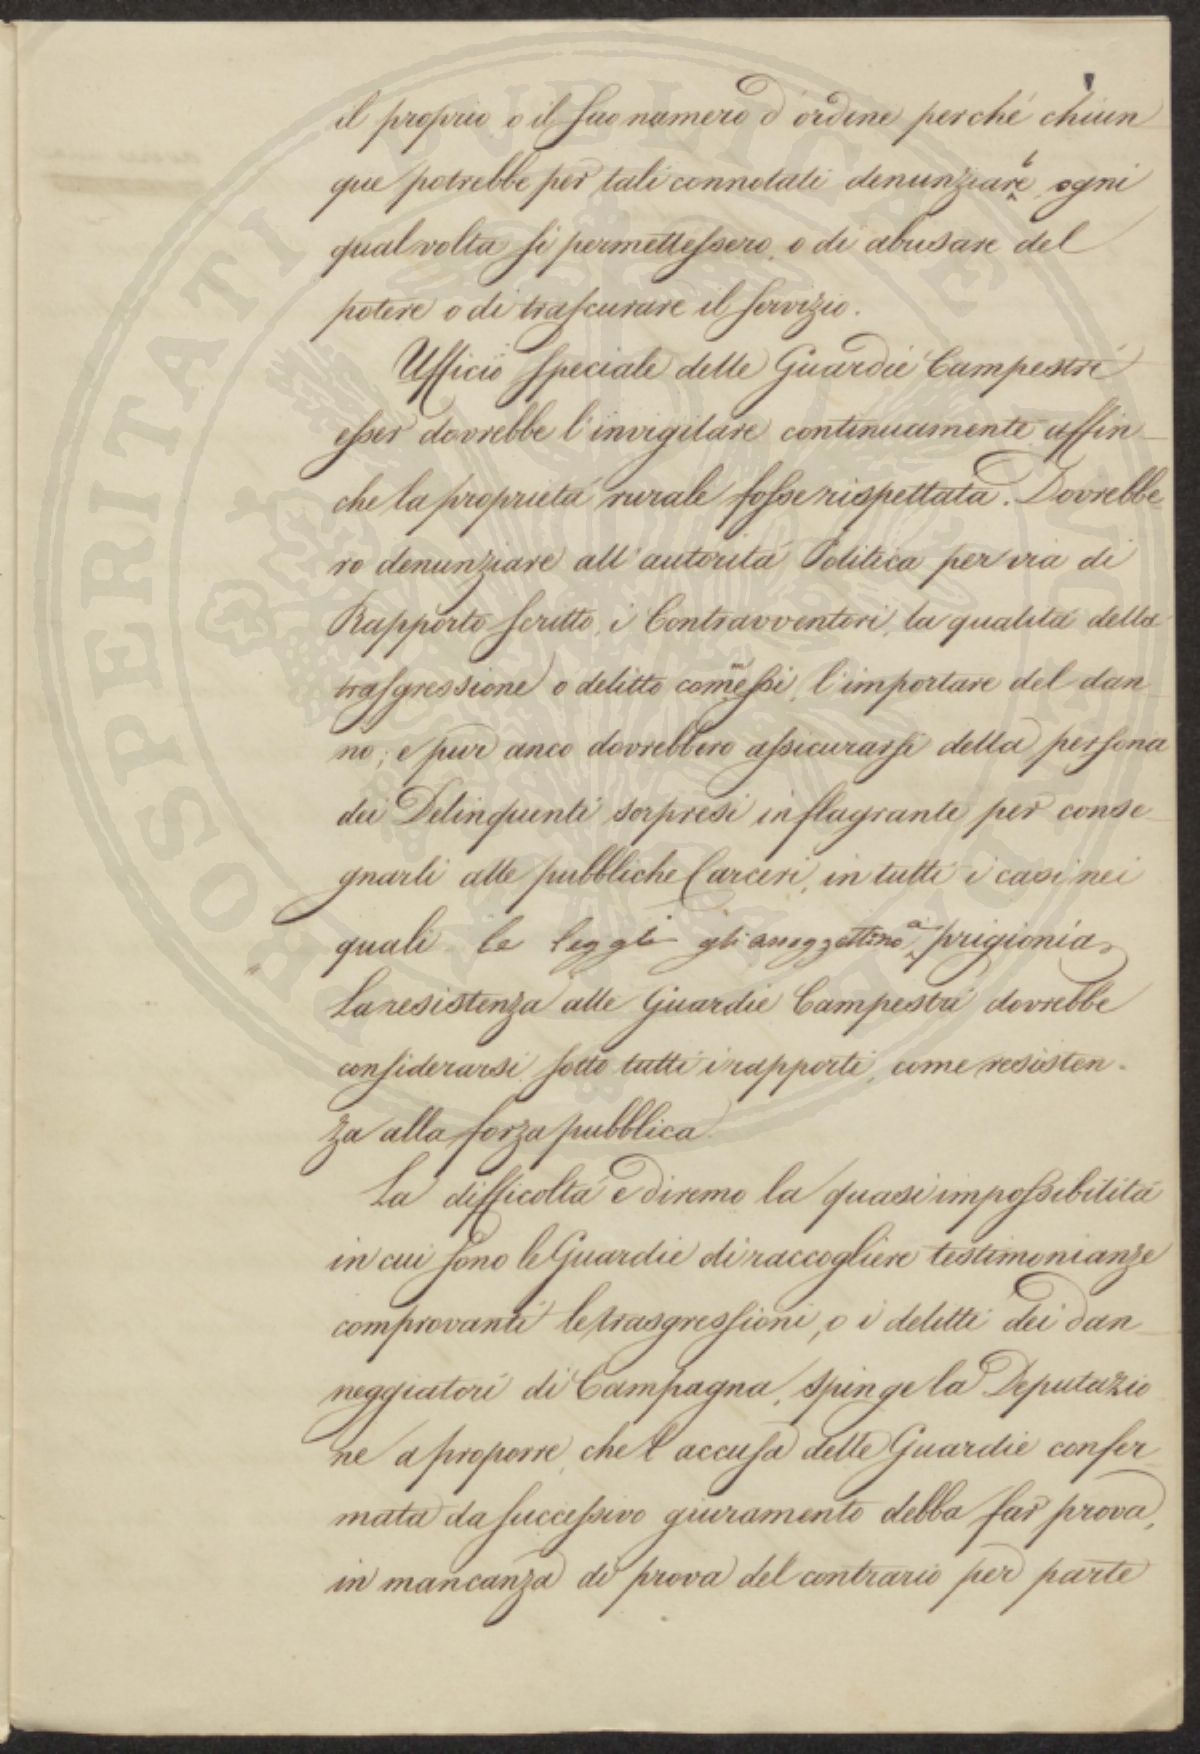 il proprio o il suo numero d'ordine perché chiun
que potrebbe per tali connotati denunziarle ogni
qual volta si permettessero o di abusare del
potere o di trascurare il servizio.
Ufficio speciale delle Guardie Campestri
esser dovrebbe l'invigilare continuamente affin-
che la proprietà rurale fosse rispettata. Dovrebbe
ro denunziare all'autorità Politica per via di
Rapporto scritto, i Contravventori, la qualità della
trasgressione o delitto commessi, l'importare del dan
no; e pur anco dovrebbero assicurarsi della persona
dei Delinquenti sorpresi in flagrante per conse-
gnarli alle pubbliche Carceri, in tutti i casi nei
quali le leggi gli assoggettino a prigionia.
La resistenza alle Guardie Campestri dovrebbe
considerarsi sotto tutti i rapporti, come resisten-
za alla forza pubblica.
La difficoltà e diremo la quasi impossibilità
in cui sono le Guardie di raccogliere testimonianze
comprovanti le trasgressioni, o i delitti dei dan-
neggiatori di Campagna, spinge la Deputazio
ne a proporre, che l'accusa delle Guardie confer-
mata da successivo giuramento debba far prova,
in mancanza di prova del contrario per parte
PROSPERITATI PUBLICAE